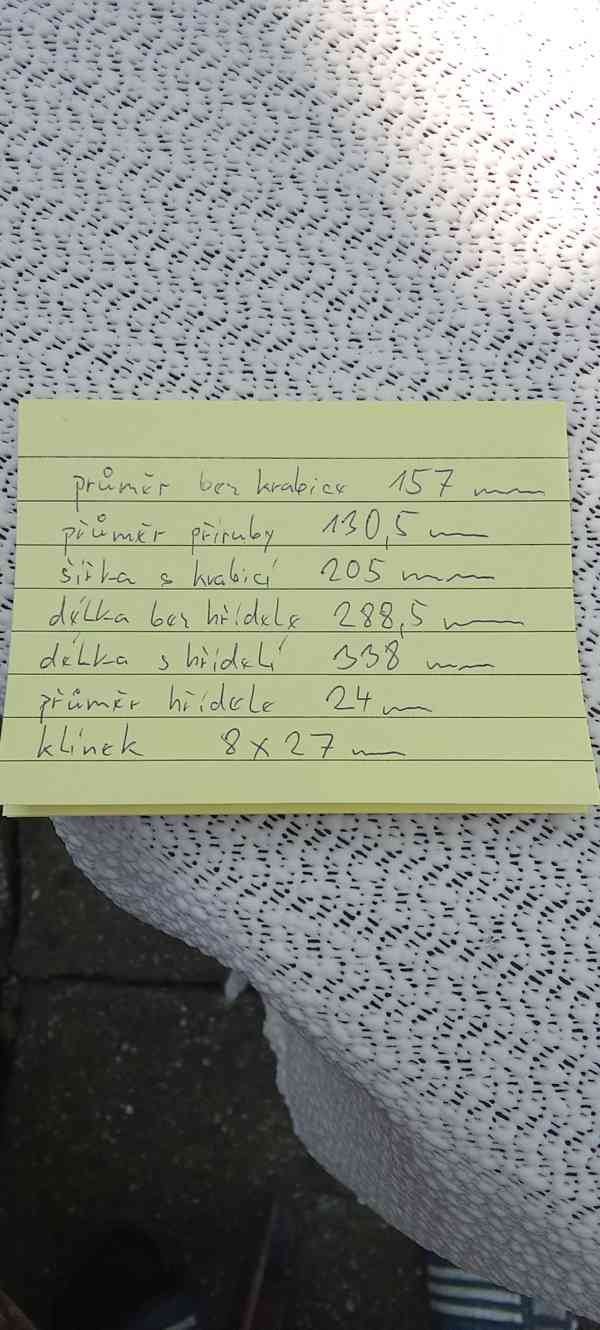 průměr bez krabice 157 mm
průměr příruby 130,5 mm
šířka s krabicí 205 mm
délka bez hřídele 288,5 mm
délka s hřídelí 338 mm
průměr hřídele 24 mm
klínek 8 x 27 mm